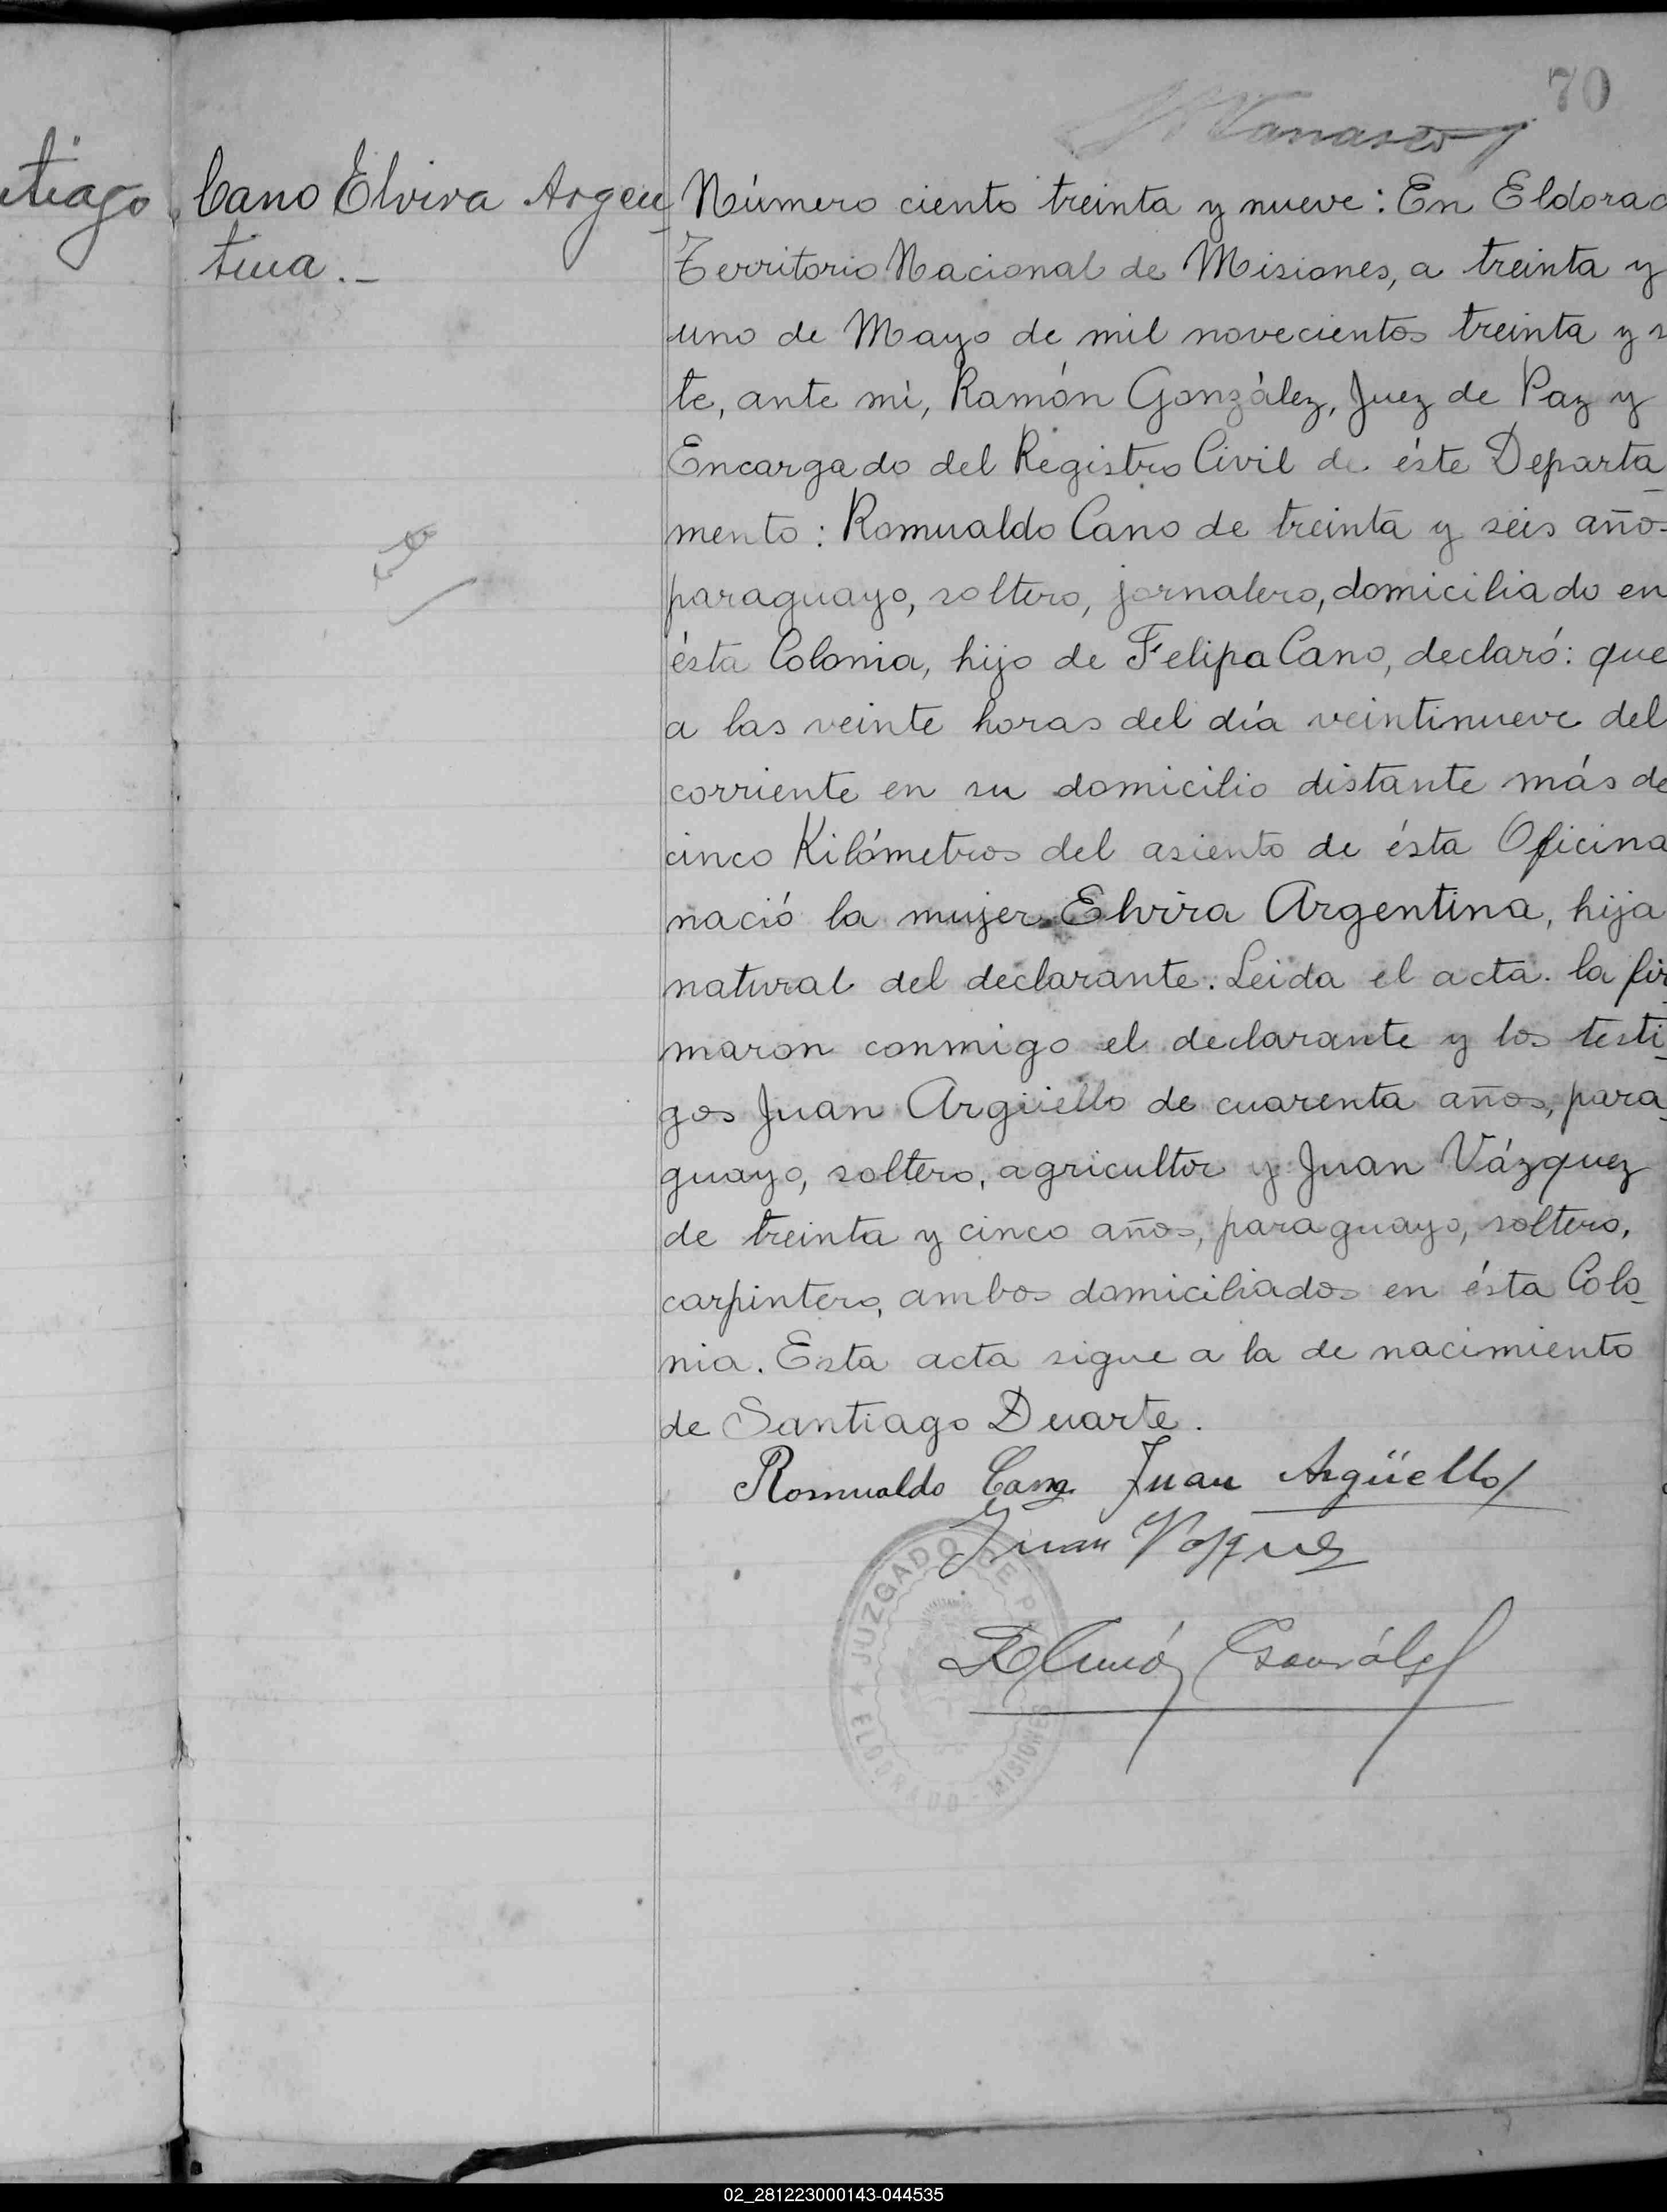 70
tiago
Cano Elvira Argen
tina.-
Número ciento treinta y nueve: En Eldorad
Territorio Nacional de Misiones, a treinta y
uno de Mayo de mil novecientos treinta y s
te, ante mí, Ramón González, Juez de Paz y
Encargado del Registro Civil de éste Departa
mento: Romualdo Cano de treinta y seis años
paraguayo, soltero, jornalero, domiciliado en
ésta Colonia, hijo de Felipa Cano, declaró: que
a las veinte horas del día veintinueve del
corriente en su domicilio distante más de
cinco Kilómetros del asiento de ésta Oficina
nació la mujer Elvira Argentina, hija
natural del declarante. Leida el acta la fir
maron conmigo el declarante y los testi_
gos Juan Argüello de cuarenta años, para_
guayo, soltero, agricultor y Juan Vázquez
de treinta y cinco años, paraguayo, soltero,
carpintero, ambos domiciliados en ésta Colo_
nia. Esta acta sigue a la de nacimiento
de Santiago Duarte.
Romualdo Cano Juan Argüello
Juan Vazquez
Ramón González
JUZGADO DE P
ELDORADO - MISIONES
02_281223000143-044535